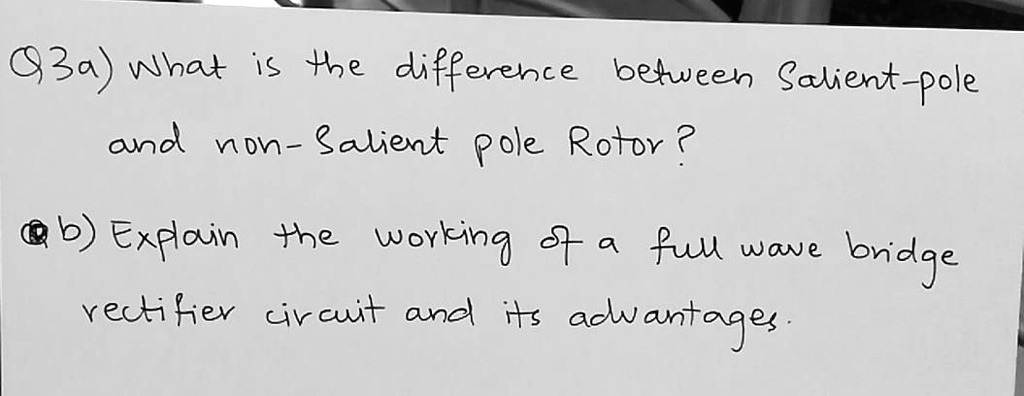 Q3a) What is the difference between Salient-pole
and non-Salient pole Rotor?
b) Explain the working of a full wave bridge
rectifier circuit and its advantages.